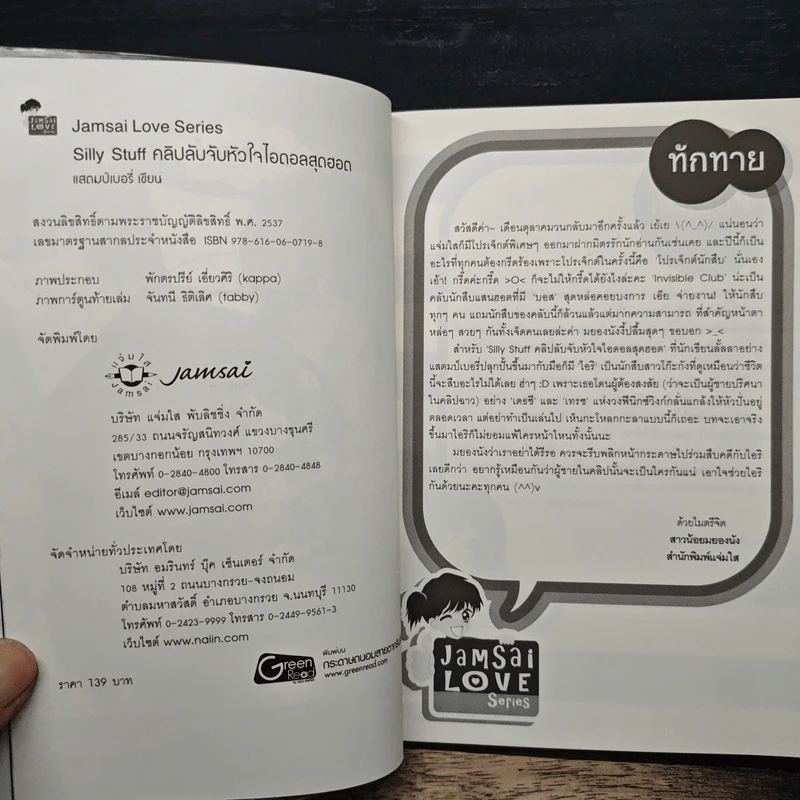 JAMSAI
LOVE
Series
Jamsai Love Series
Silly Stuff คลิปลับจับหัวใจไอดอลสุดฮอต
แสตมป์เบอรี่ เขียน
สงวนลิขสิทธิ์ตามพระราชบัญญัติลิขสิทธิ์ พ.ศ. 2537
เลขมาตรฐานสากลประจำหนังสือ ISBN 978-616-06-0719-8
ภาพประกอบ พักตรปรีย์ เอี่ยวศิริ (kappa)
ภาพการ์ตูนท้ายเล่ม จันทนี ธิติเลิศ (tabby)
จัดพิมพ์โดย
แจ่มใส
Jamsai
Jamsai
บริษัท แจ่มใส พับลิชชิ่ง จำกัด
285/33 ถนนจรัญสนิทวงศ์ แขวงบางขุนศรี
เขตบางกอกน้อย กรุงเทพฯ 10700
โทรศัพท์ 0-2840-4800 โทรสาร 0-2840-4848
อีเมล์ editor@jamsai.com
เว็บไซต์ www.jamsai.com
จัดจำหน่ายทั่วประเทศโดย
บริษัท อมรินทร์ บุ๊ค เซ็นเตอร์ จำกัด
108 หมู่ที่ 2 ถนนบางกรวย-จงถนอม
ตำบลมหาสวัสดิ์ อำเภอบางกรวย จ.นนทบุรี 11130
โทรศัพท์ 0-2423-9999 โทรสาร 0-2449-9561-3
เว็บไซต์ www.naiin.com
Green
Read
พิมพ์บน
กระดาษถนอมสายตากรีนรีด
www.greenread.com
ราคา 139 บาท
ทักทาย
สวัสดีค่า~ เดือนตุลาคมวนกลับมาอีกครั้งแล้ว เย้เย \(^_^)/ แน่นอนว่า
แจ่มใสก็มีโปรเจ็กต์พิเศษๆ ออกมาฝากมิตรรักนักอ่านกันเช่นเคย และปีนี้ก็เป็น
อะไรที่ทุกคนต้องกรีดร้องเพราะโปรเจ็กต์ในครั้งนี้คือ 'โปรเจ็กต์นักสืบ' นั่นเอง
เอ้า! กรี๊ดค่ะกรี๊ด >O< ก็จะไม่ให้กรี๊ดได้ยังไงล่ะคะ 'Invisible Club' น่ะเป็น
คลับนักสืบแสนฮอตที่มี 'บอส' สุดหล่อคอยบงการ เอ๊ย จ่ายงาน! ให้นักสืบ
ทุกๆ คน แถมนักสืบของคลับนี้ก็ล้วนแล้วแต่มากความสามารถ ที่สำคัญหน้าตา
หล่อๆ สวยๆ กันทั้งเจ็ดคนเลยล่ะค่า มยองนังงี้ปลื้มสุดๆ ขอบอก >_<
สำหรับ 'Silly Stuff คลิปลับจับหัวใจไอดอลสุดฮอต' ที่นักเขียนลั้ลลาอย่าง
แสตมป์เบอรี่ปลุกปั้นขึ้นมากับมือก็มี 'ไอริ' เป็นนักสืบสาวโก๊ะกังที่ดูเหมือนว่าชีวิต
นี้จะสืบอะไรไม่ได้เลย ฮ่าๆ :D เพราะเธอโดนผู้ต้องสงสัย (ว่าจะเป็นผู้ชายปริศนา
ในคลิปฉาว) อย่าง 'เดธซี' และ 'เทรซ' แห่งวงฟีนิกซ์วิงก์กลั่นแกล้งให้หัวปั่นอยู่
ตลอดเวลา แต่อย่าทำเป็นเล่นไป เห็นกะโหลกกะลาแบบนี้ก็เถอะ บทจะเอาจริง
ขึ้นมาไอริก็ไม่ยอมแพ้ใครหน้าไหนทั้งนั้นนะ
มยองนังว่าเราอย่าได้รีรอ ควรจะรีบพลิกหน้ากระดาษไปร่วมสืบคดีกับไอริ
เลยดีกว่า อยากรู้เหมือนกันว่าผู้ชายในคลิปนั้นจะเป็นใครกันแน่ เอาใจช่วยไอริ
กันด้วยนะคะทุกคน (^^)v
ด้วยไมตรีจิต
สาวน้อยมยองนัง
สำนักพิมพ์แจ่มใส
JAMSAI
LOVE
Series